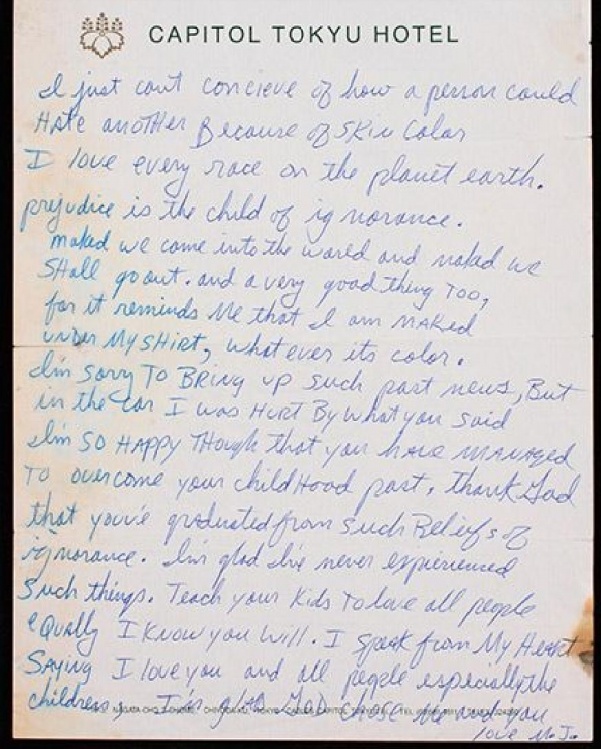 CAPITOL TOKYU HOTEL
I just cant concieve of how a person could
Hate another Because of Skin Color
I love every race on the planet earth.
prejudice is the child of ignorance.
naked we come into the world and naked we
SHall go out. and a very good thing TOO,
for it reminds Me that I am NAKed
under My SHirt, what ever its color.
I'm Sorry TO BRing up Such past news, But
in the car I was HurT By what you said
I'm SO HAPPY THough that you have MANAGed
TO overcome your childHood past, Thank God
that you've graduated from such Beliefs of
ignorance. I'm glad I've never experienced
Such things. Teach your Kids To love all people
equally I Know you will. I speak from My Heart
Saying I love you and all people especially the
children, I'm glad God chose me and you
love M.J.